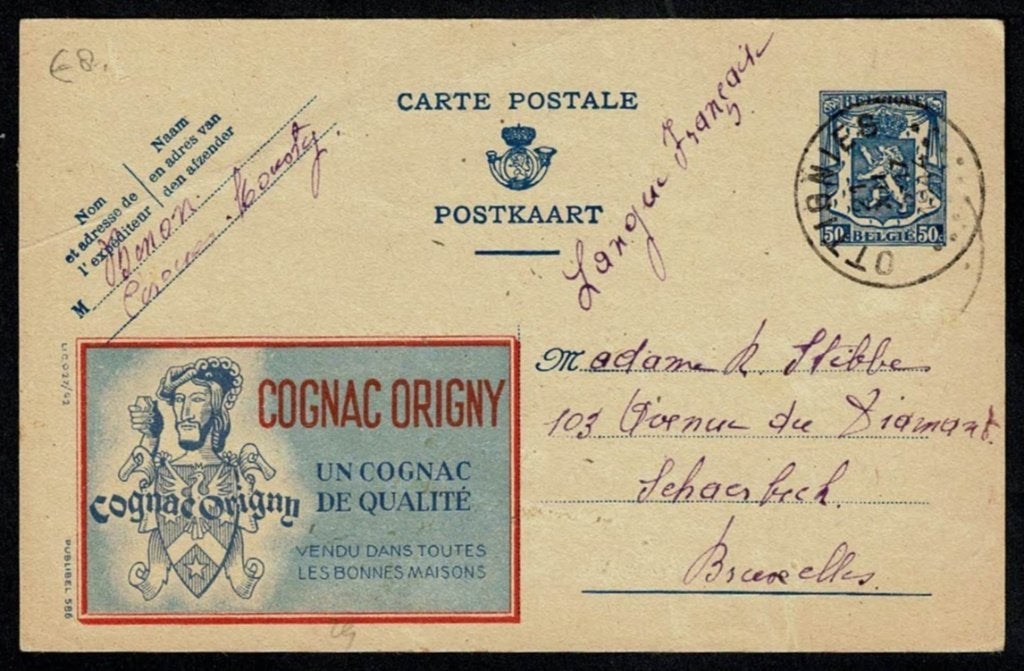 €8.
CARTE POSTALE
POSTKAART
Nom
et adresse de
l'expéditeur
Naam
en adres van
den afzender
M
Langue Française
BELGIQUE
50c BELGIË 50c
OTTIGNIES
LIC.027/42
COGNAC ORIGNY
UN COGNAC
DE QUALITÉ
VENDU DANS TOUTES
LES BONNES MAISONS
Cognac Origny
PUBLIBEL 586
Madame R. Stibbe
103 Avenue du Diamant.
Schaerbeek
Bruxelles.